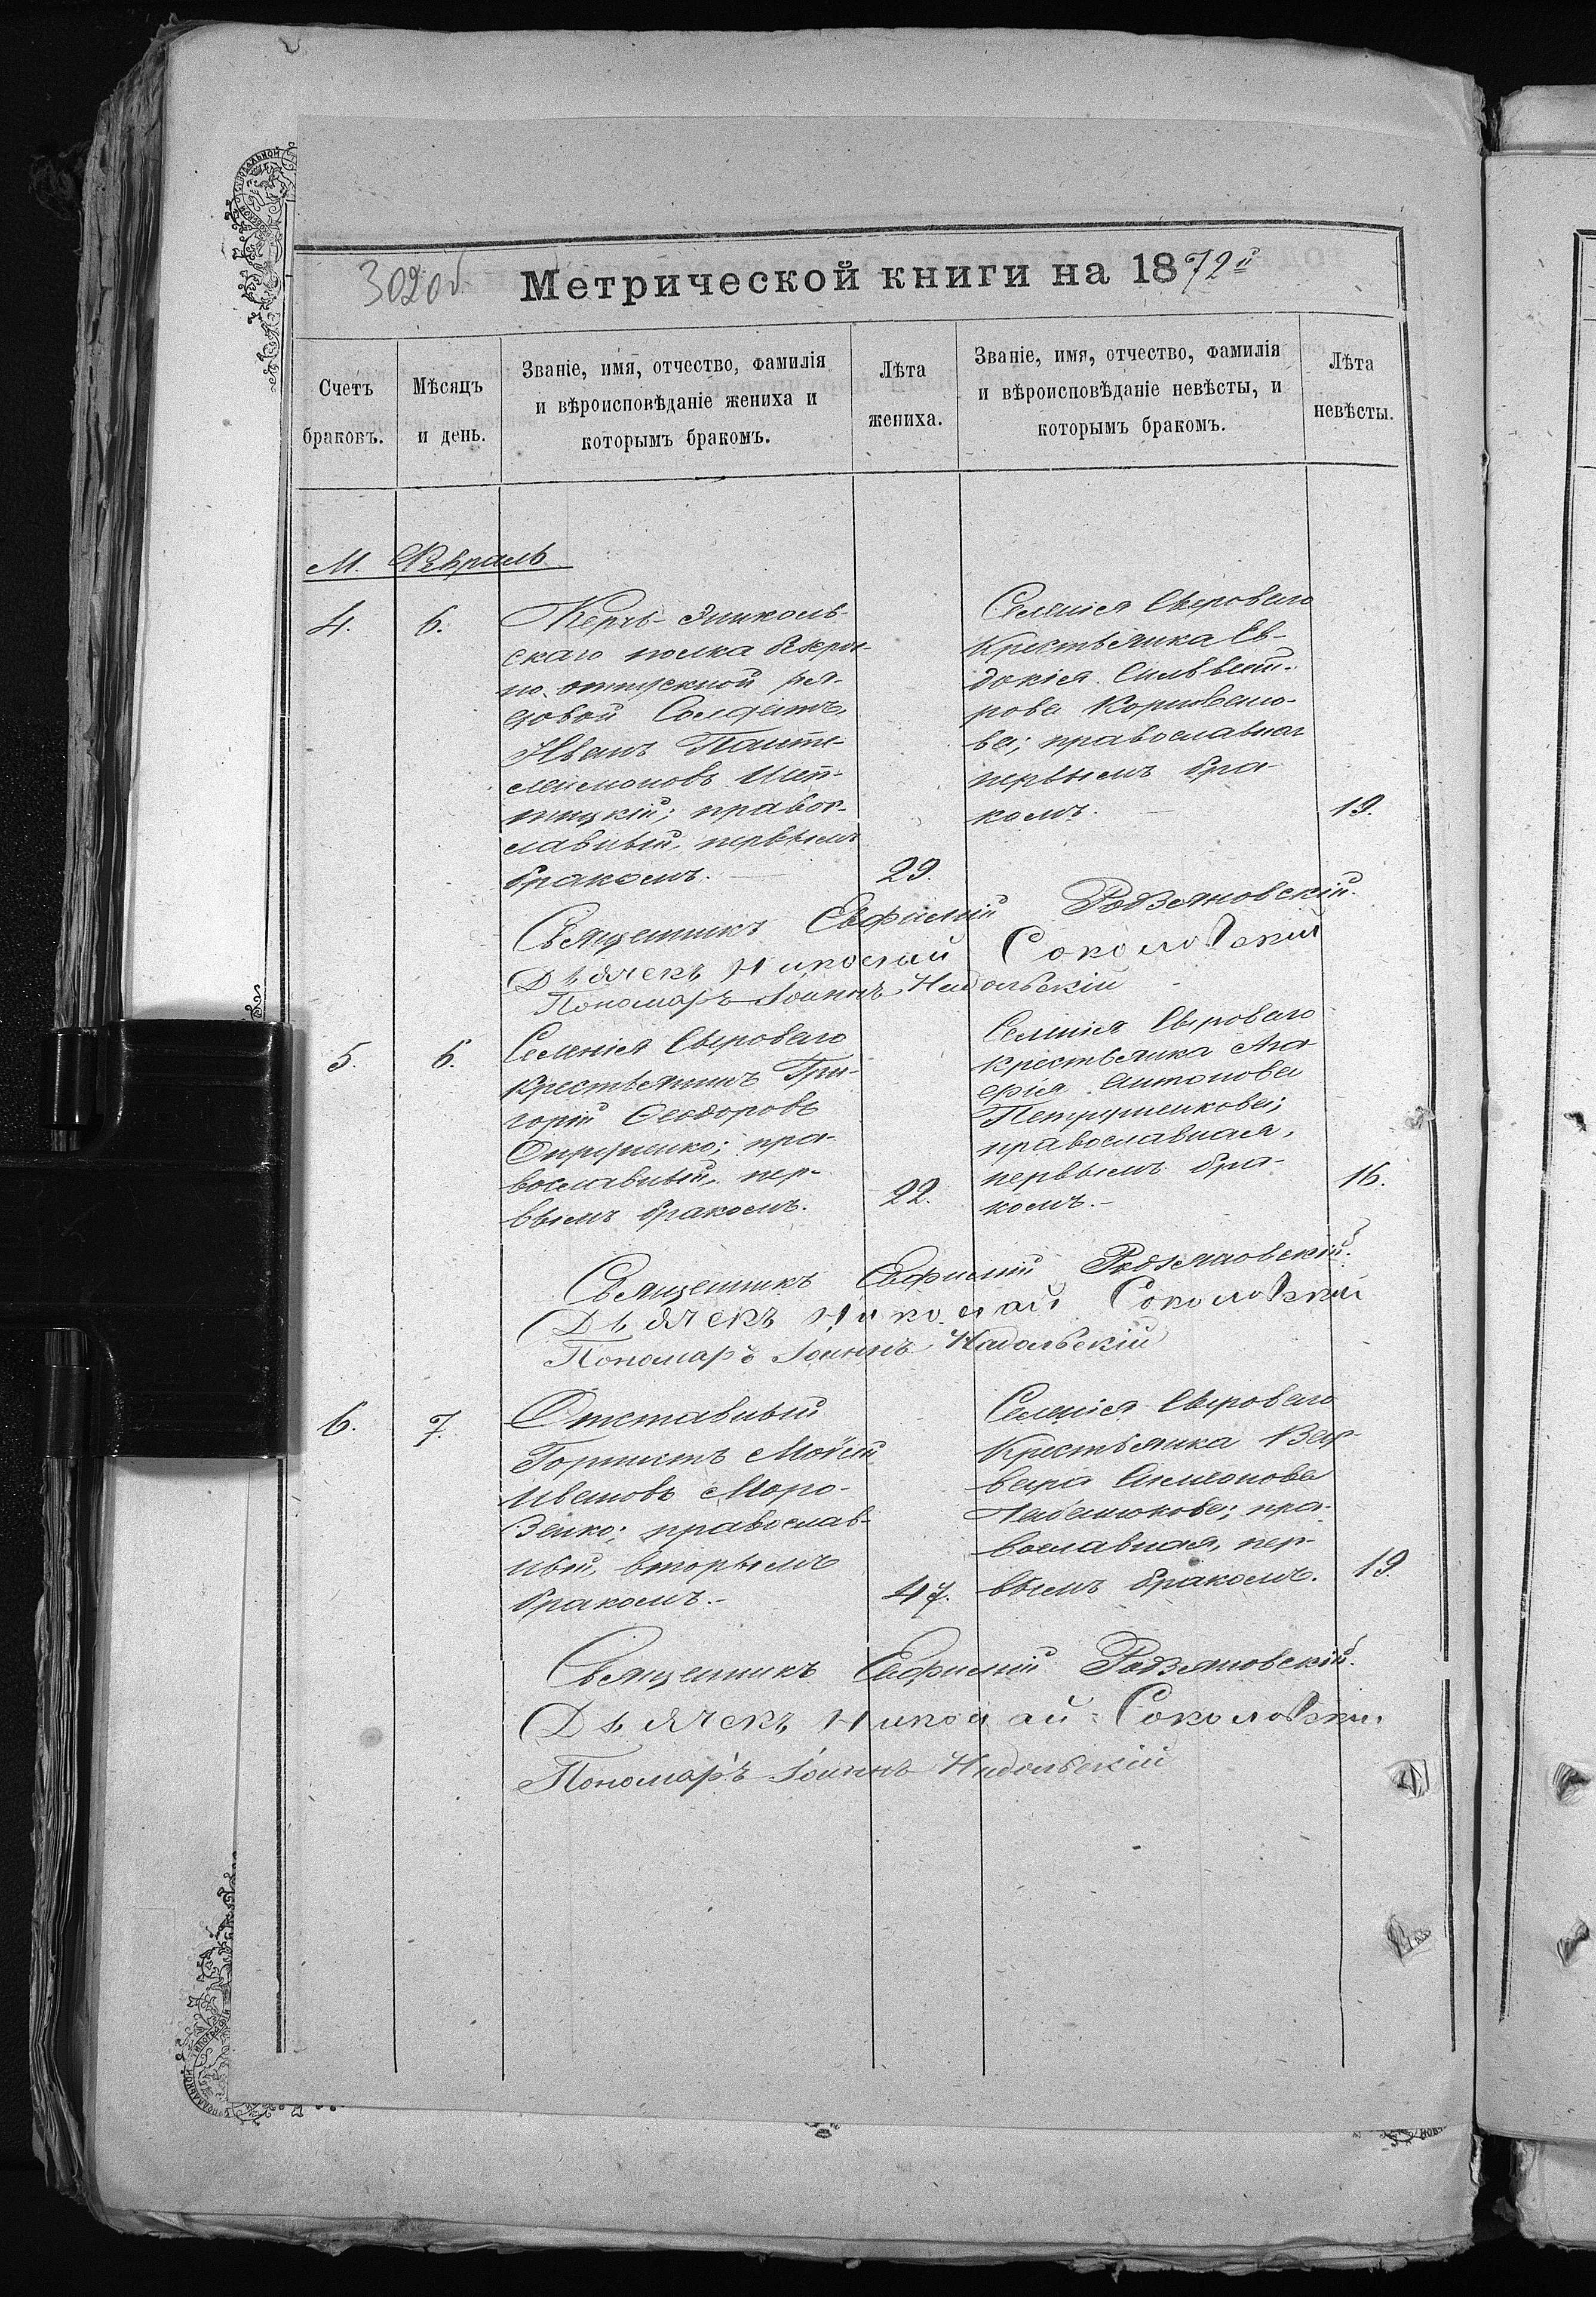 302об
Метрической книги на 1872й
Счетъ браковъ.
Мѣсяцъ и день.
Званіе, имя, отчество, фамилія
и вѣроисповѣданіе жениха и
которымъ бракомъ.
Лѣта жениха.
Званіе, имя, отчество, фамилія
и вѣроисповѣданіе невѣсты, и
которымъ бракомъ.
Лѣта невѣсты.
М. Февраль
4. 6.
Керчь-Эниколь-
скаго полка
отпускной ря-
довой Солдатъ,
Иванъ Панте-
леимоновъ Шеп-
тицкій; правос-
лавный, первымъ
бракомъ.
29.
Селенія Сыроваго
Крестьянка Ев-
докія Сильвест-
рова
ва; православная
первымъ бра-
комъ.
19.
Священникъ Евфимій Родзяновскій.
Дьячекъ Николай Соколовскій
Пономарь Іоаннъ Надольскій
5. 6.
Селенія Сыроваго
крестьянинъ Гри-
горій Ѳеодоровъ
Онуфріенко; пра-
вославный, пер-
вымъ бракомъ.
22.
Селенія Сыроваго
крестьянка Ма-
рія Антонова
православная,
первымъ бра-
комъ.-
16.
Священникъ Евфимій Родзяновскій.
Дьячекъ Николай Соколовскій
Пономарь Іоаннъ Надольскій
6. 7.
Отставный
Горнистъ Мойсей
Ивановъ Моро-
зенко; православ-
ный, вторымъ
бракомъ.-
47.
Селенія Сыроваго
Крестьянка Вар-
вара Симеонова
пра-
вославная, пер-
вымъ бракомъ.
19.
Священникъ Евфимій Родзяновскій.
Дьячекъ Николай Соколовскій
Пономарь Іоаннъ Надольскій